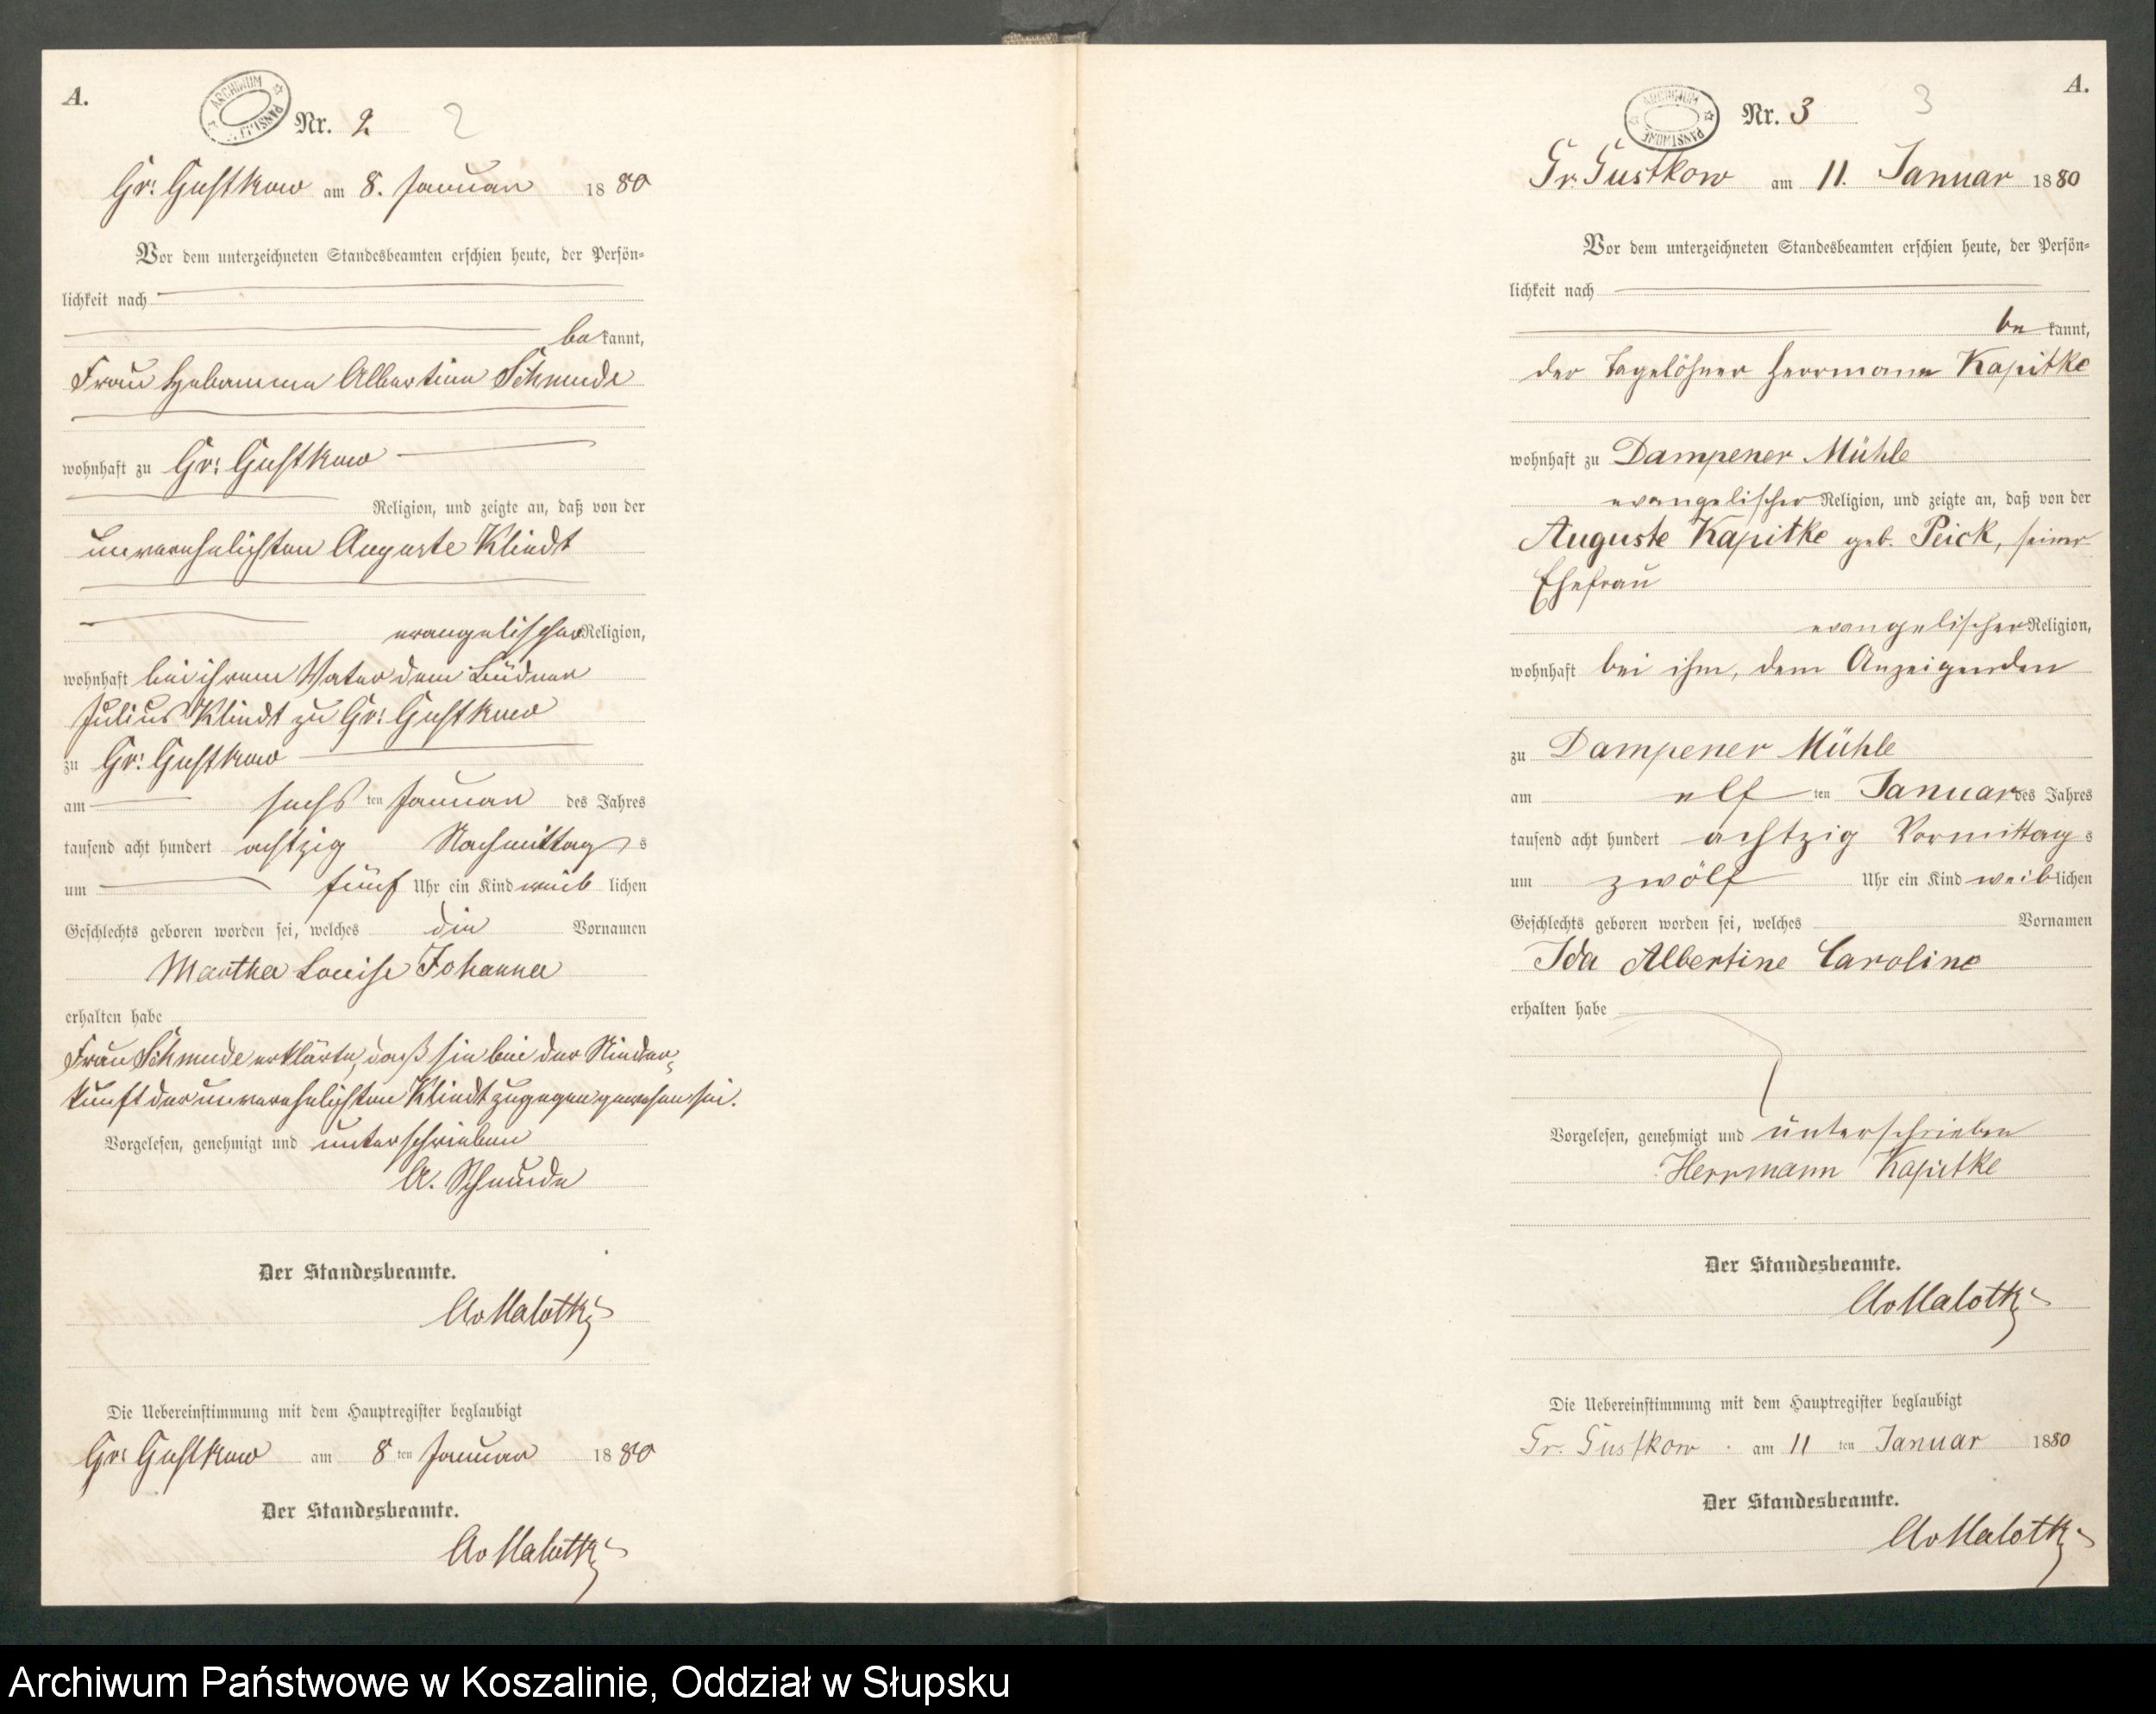 A.
ARCHIWUM PAŃSTWOWE
Nr. 2 2
Gr: Gustkow am 8. Januar 1880
Vor dem unterzeichneten Standesbeamten erschien heute, der Persön-
lichkeit nach
bekannt,
Frau Hebamme Albertine Schmude
wohnhaft zu Gr: Gustkow
Religion, und zeigte an, daß von der
unverehelichten Auguste Klindt
evangelischer Religion,
wohnhaft bei ihrem Vater dem Büdner
Julius Klindt zu Gr: Gustkow
zu Gr: Gustkow
am sechsten Januar des Jahres
tausend acht hundert achtzig Nachmittags
um fünf Uhr ein Kind weiblichen
Geschlechts geboren worden sei, welches die Vornamen
Martha Louise Johanna
erhalten habe
Frau Schmude erklärte, daß sie bei der Nieder-
kunft der unverehelichten Klindt zugegen gewesen sei.
Vorgelesen, genehmigt und unterschrieben
A. Schmude
Der Standesbeamte.
AvMalotki
Die Uebereinstimmung mit dem Hauptregister beglaubigt
Gr: Gustkow am 8ten Januar 1880
Der Standesbeamte.
AvMalotki
A.
ARCHIWUM PAŃSTWOWE
Nr. 3 3
Gr. Gustkow am 11. Januar 1880
Vor dem unterzeichneten Standesbeamten erschien heute, der Persön-
lichkeit nach
bekannt,
der Tagelöhner Herrmann Kapitke
wohnhaft zu Dampener Mühle
evangelischer Religion, und zeigte an, daß von der
Auguste Kapitke geb. Peick, seiner
Ehefrau
evangelischer Religion,
wohnhaft bei ihm, dem Anzeigenden
zu Dampener Mühle
am elften Januar des Jahres
tausend acht hundert achtzig Vormittags
um zwölf Uhr ein Kind weiblichen
Geschlechts geboren worden sei, welches Vornamen
Ida Albertine Caroline
erhalten habe
Vorgelesen, genehmigt und unterschrieben
Herrmann Kapitke
Der Standesbeamte.
AvMalotki
Die Uebereinstimmung mit dem Hauptregister beglaubigt
Gr. Gustkow am 11ten Januar 1880
Der Standesbeamte.
AvMalotki
Archiwum Państwowe w Koszalinie, Oddział w Słupsku